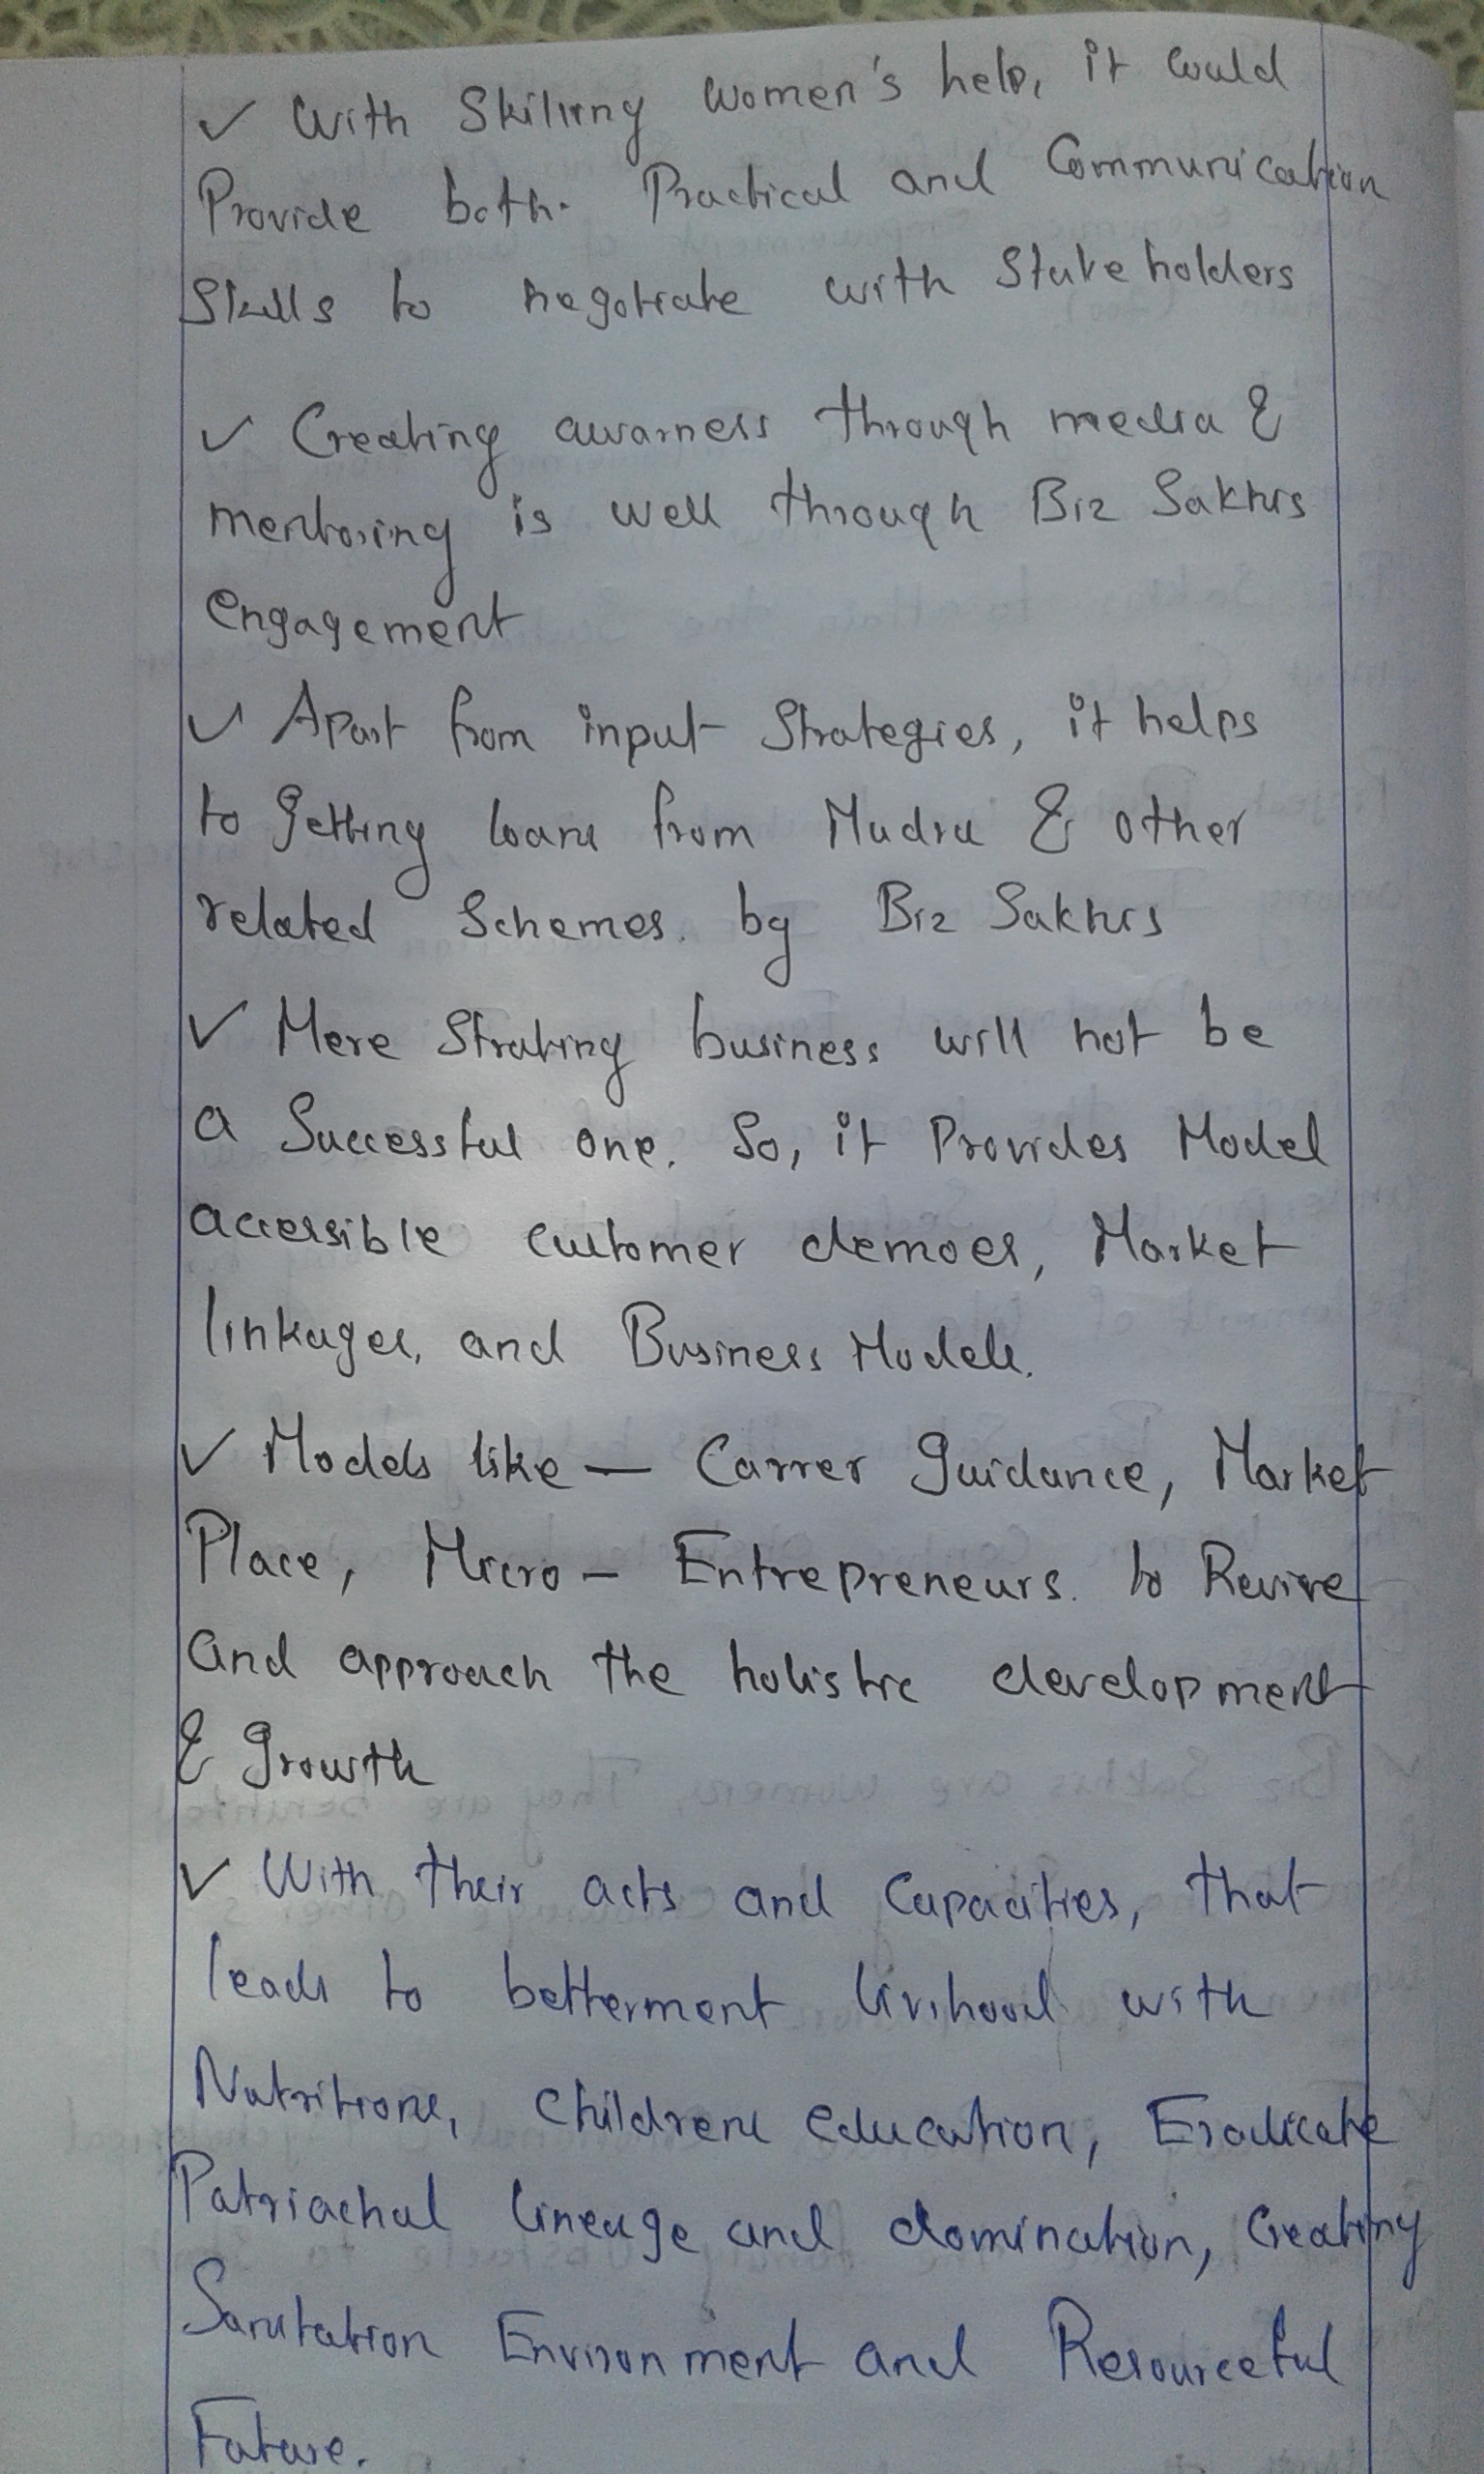 ✓ With Skilling women's help, it could
Provide both. Practical and Communication
Skills to negotiate with Stakeholders
✓ Creating awarness through media &
mentoring is well through Biz Sakhis
engagement
✓ Apart from input Strategies, it helps
to getting loans from Mudra & other
related Schemes. by Biz Sakhis
✓ Mere Strating business will not be
a Successful one. So, it Provides Model
accessible customer demoes, Market
linkages, and Business Models.
✓ Models like — Carrer Guidance, Market
Place, Micro - Entrepreneurs. to Revive
and approach the holistic development
& Growth
✓ With their acts and Capacities, that
leads to betterment livihood with
Nutritions, Childrens education, Eradicate
Patriachal lineage and domination, Creating
Sanitation Environment and Resourceful
Future.